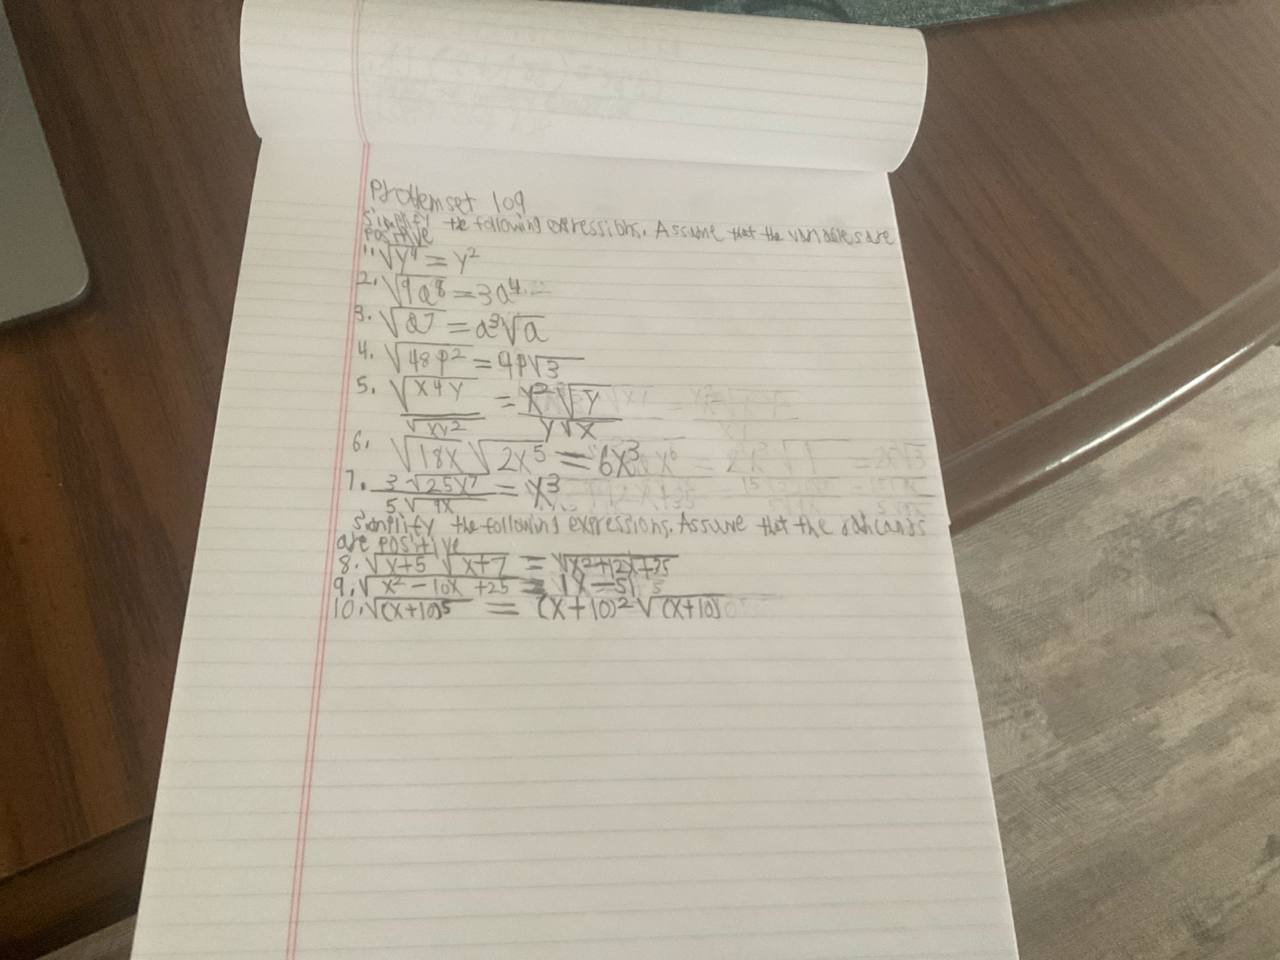 Problem set 109
Simplify the following expressions. Assume that the variables are
positive
1. √y⁴ = y²
2. √9a⁸ = 3a⁴
3. √a⁷ = a³√a
4. √48p² = 4p√3
5. √x⁴y / √xy² = x²√y / y√x
6. √18x √2x⁵ = 6x³
7. 3√25x⁷ / 5√9x = x³
Simplify the following expressions. Assume that the radicands
are positive
8. √x+5 √x+7 = √x²+12x+35
9. √x² − 10x + 25 = |x − 5|
10. √(x+10)⁵ = (x+10)² √(x+10)